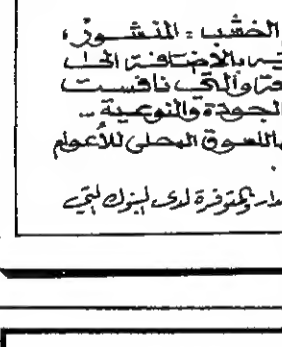 الخشب : المنشور،
بالإضافة الى
والتي نافست
الجودة والنوعية ..
للسوق المحلي للأعوام
.
والمتوفرة لدى البنوك التي